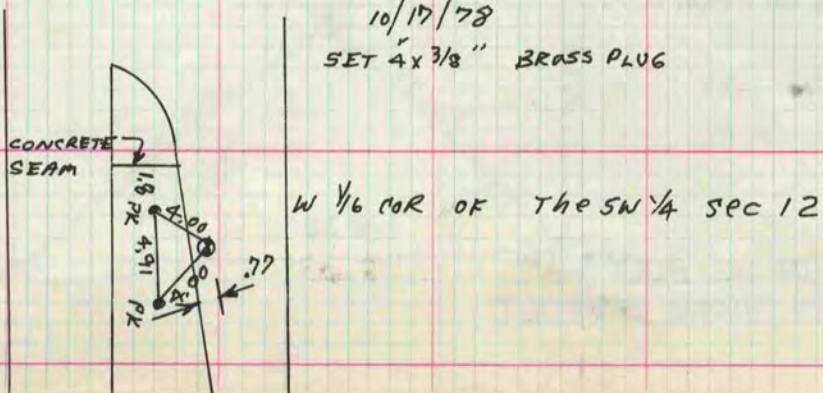 10/17/78
SET 4" x 3/8" BRASS PLUG
CONCRETE
SEAM
W 1/16 COR OF The SW 1/4 Sec 12
1.8
PK
4.00
4.91
4.00
.77
PK